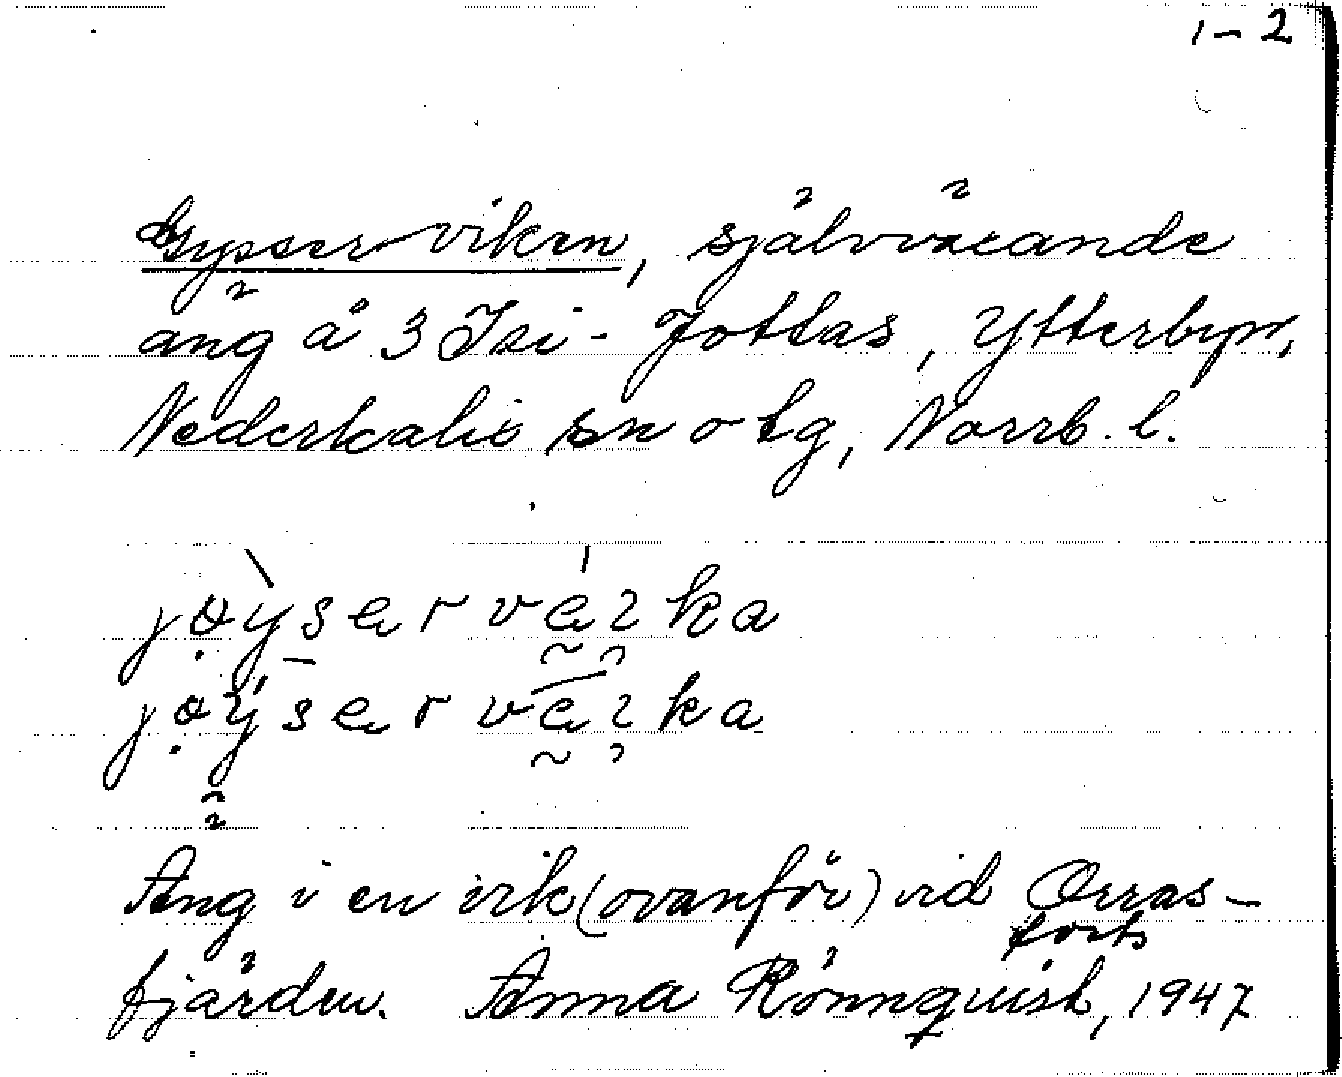 1-2
Gysserviken, självväxande
äng å 3 Isi-Jottas, Ytterbyn,
Nederkalix sn o tg, Norrb. l.
Äng i en vik (ovanför) vid Orras-
forts
fjärden. Anna Rönnquist, 1947